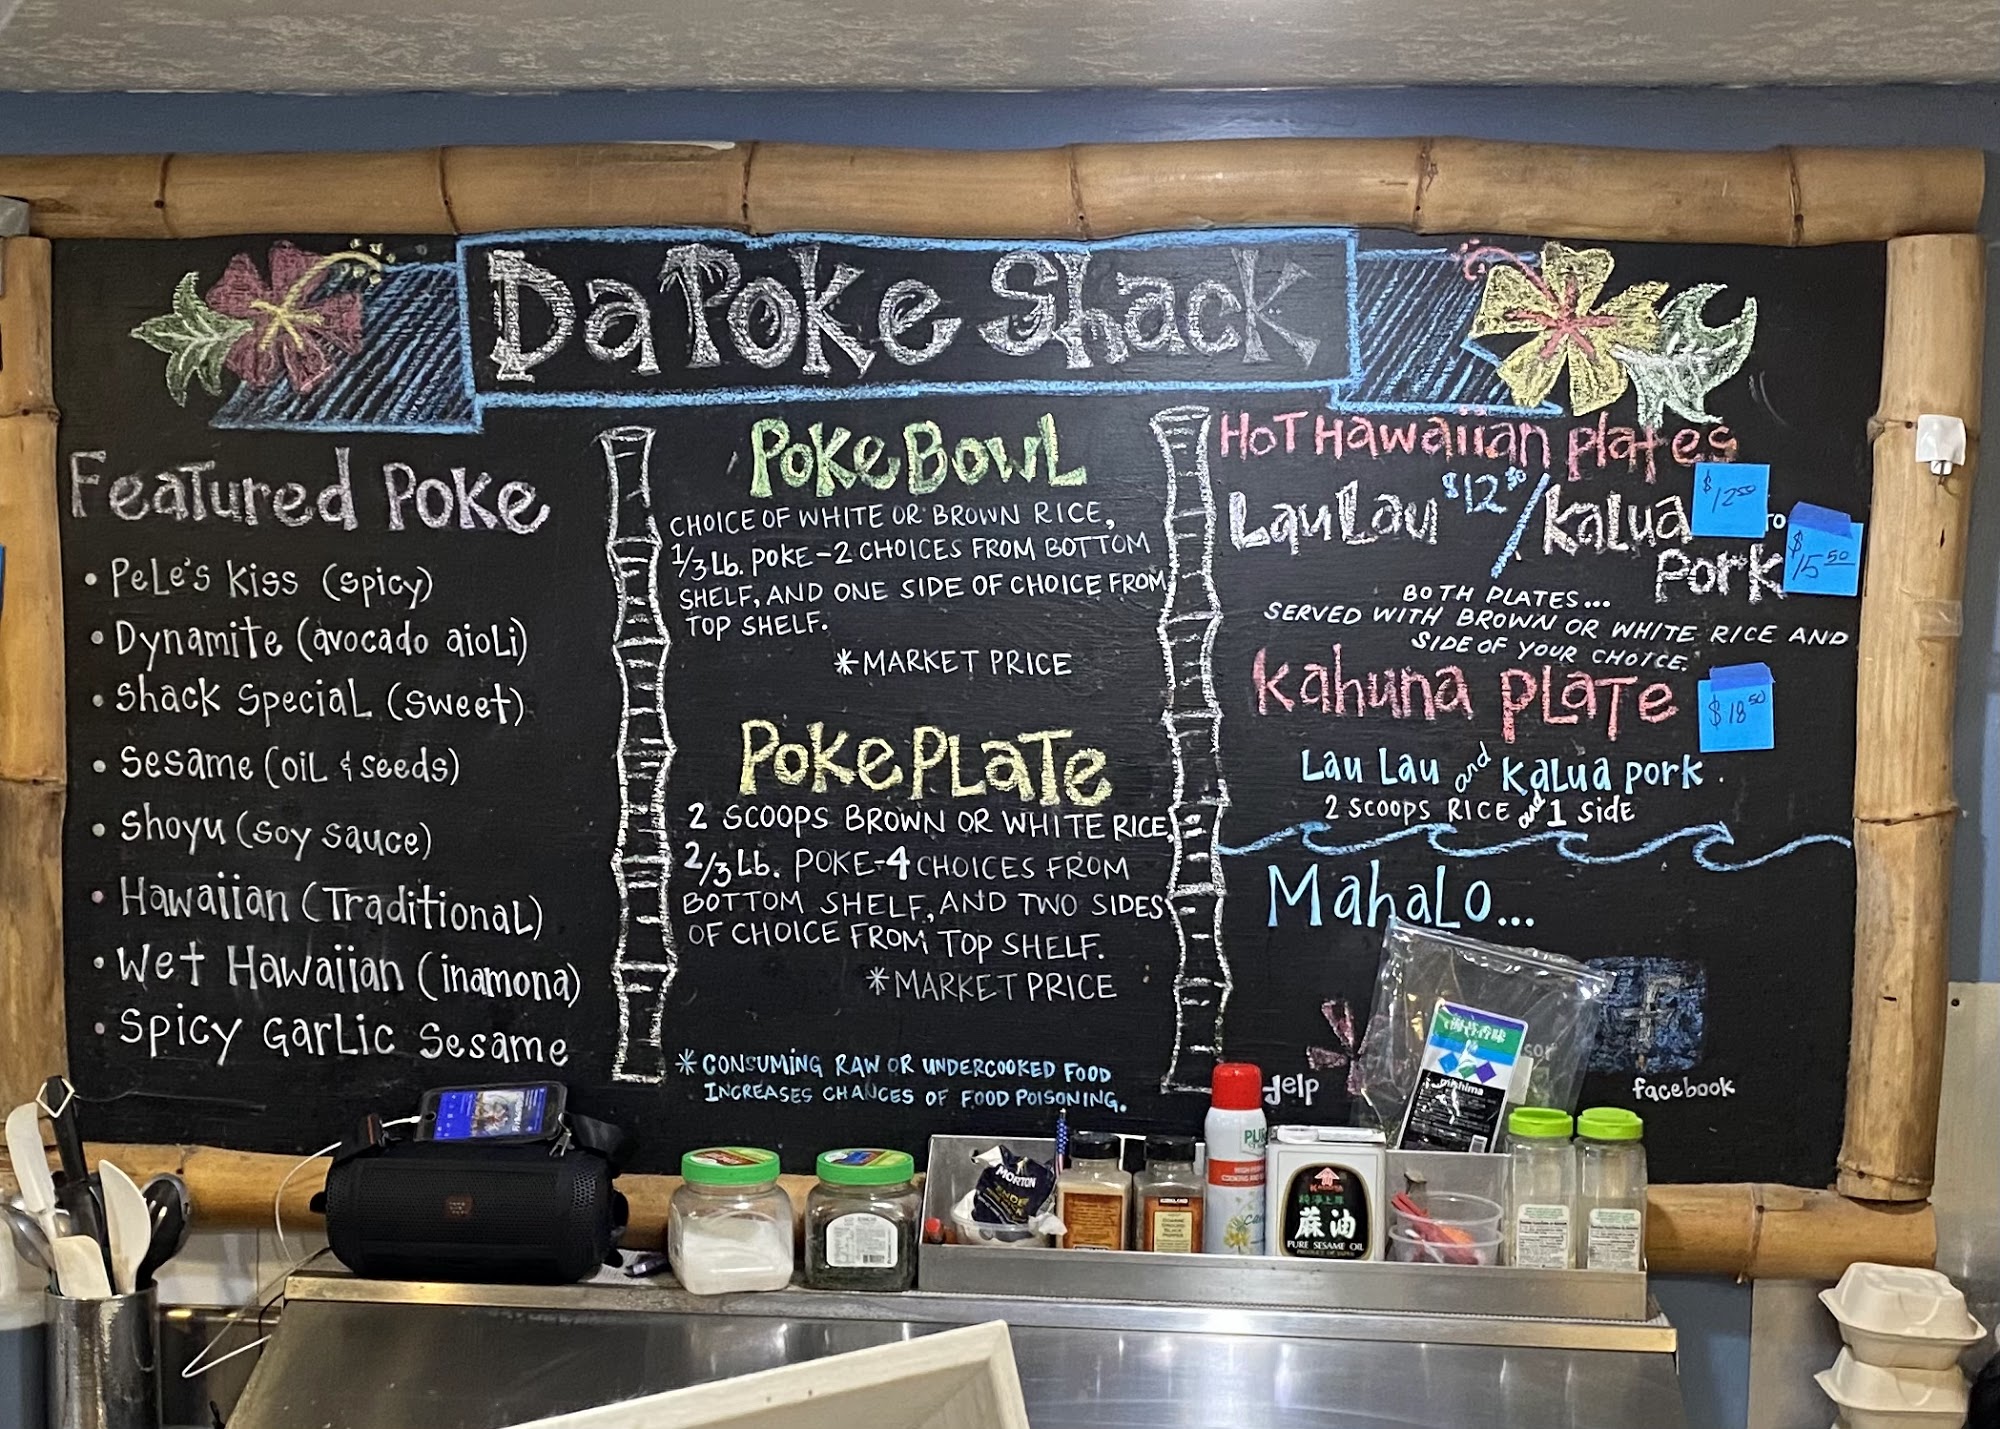 Da Poke Shack
Featured Poke
• Pele's Kiss (spicy)
• Dynamite (avocado aioli)
• Shack Special (sweet)
• Sesame (oil & seeds)
• Shoyu (soy sauce)
• Hawaiian (Traditional)
• Wet Hawaiian (inamona)
• Spicy Garlic Sesame
Poke Bowl
CHOICE OF WHITE OR BROWN RICE,
1/3 Lb. POKE - 2 CHOICES FROM BOTTOM
SHELF, AND ONE SIDE OF CHOICE FROM
TOP SHELF.
*MARKET PRICE
Poke Plate
2 SCOOPS BROWN OR WHITE RICE,
2/3 Lb. POKE - 4 CHOICES FROM
BOTTOM SHELF, AND TWO SIDES
OF CHOICE FROM TOP SHELF.
*MARKET PRICE
* CONSUMING RAW OR UNDERCOOKED FOOD
INCREASES CHANCES OF FOOD POISONING.
Hot Hawaiian Plates
Lau Lau $12.50 / Kalua $12.50
Pork $15.50
BOTH PLATES...
SERVED WITH BROWN OR WHITE RICE AND
SIDE OF YOUR CHOICE.
Kahuna Plate $18.50
Lau Lau and Kalua pork
2 SCOOPS RICE and 1 side
Mahalo...
yelp
f
facebook
MORTON
KIRKLAND
麻油
PURE SESAME OIL